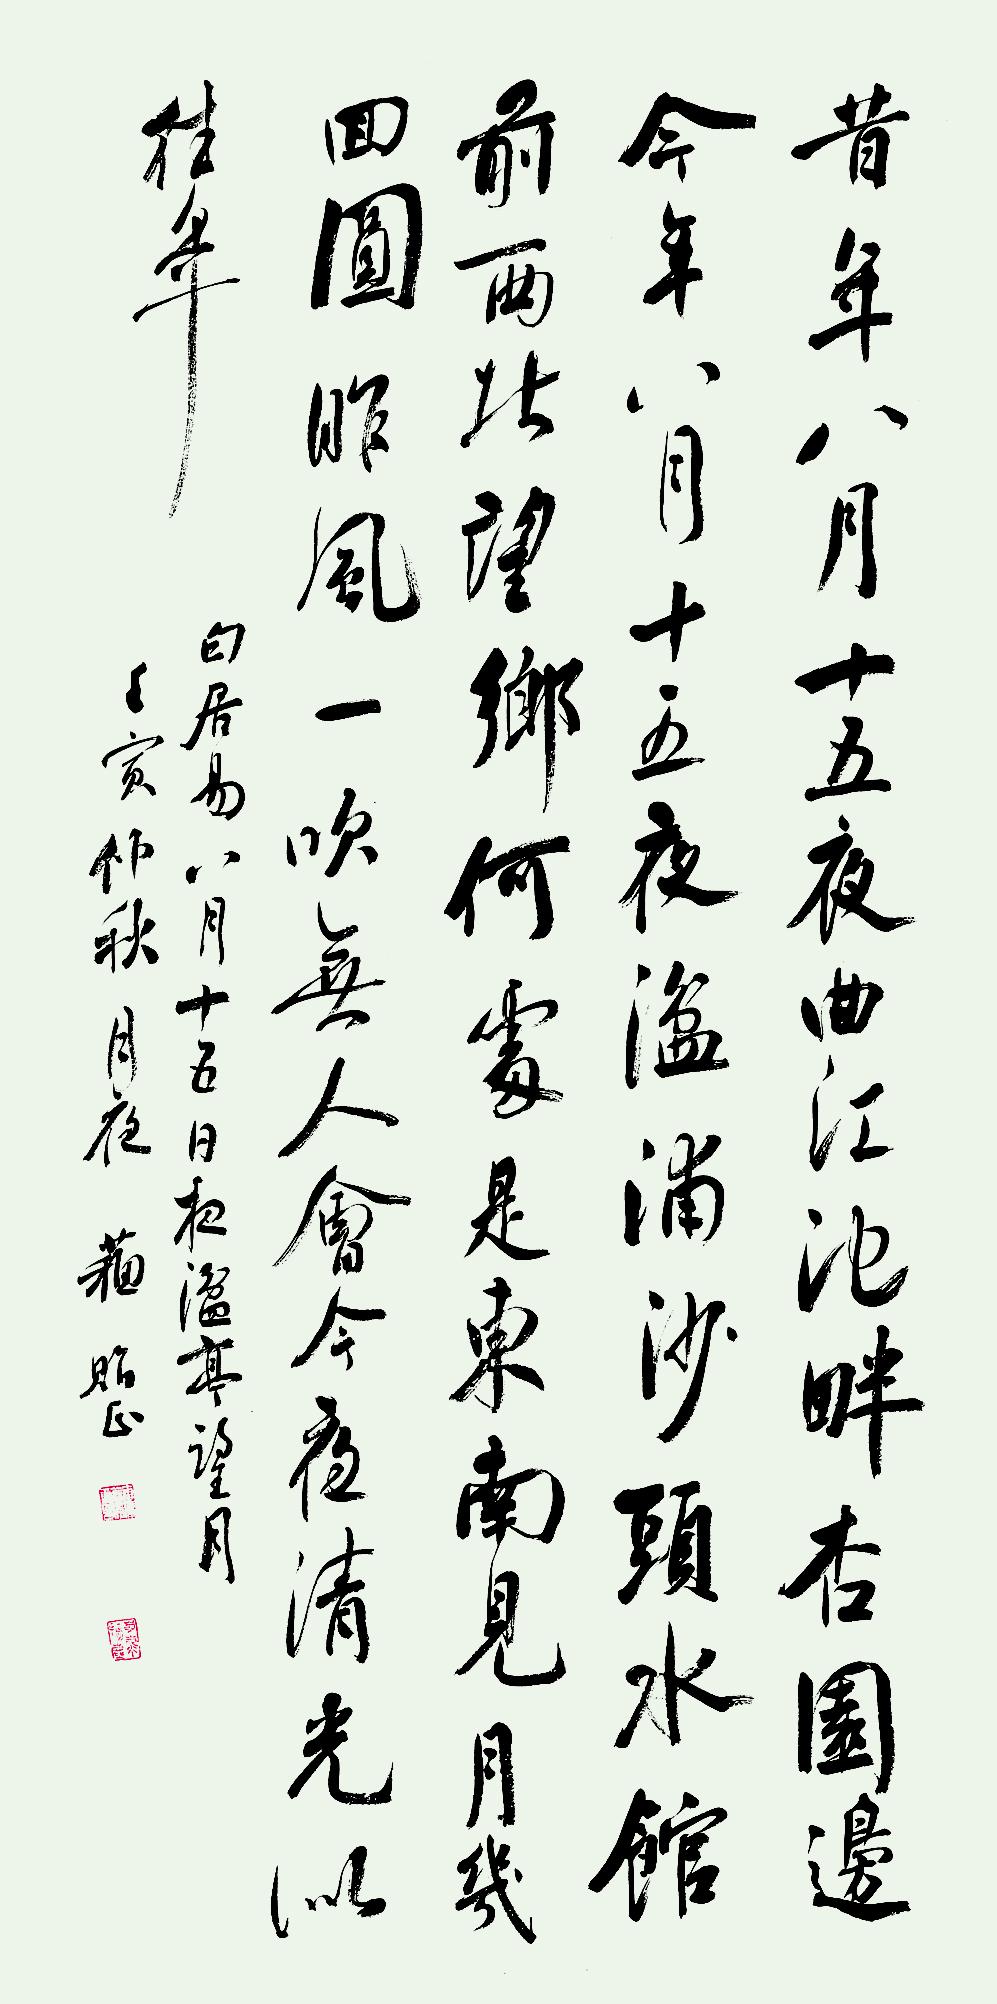 昔年八月十五夜曲江池畔杏園邊
今年八月十五夜湓浦沙頭水館
前西北望鄉何處是東南見月幾
回圓昨風一吹無人會今夜清光似
往年
白居易八月十五日夜湓亭望月
壬寅仲秋月夜 蘇貽正